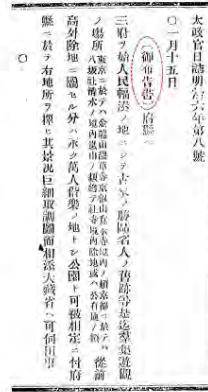 太政官日誌明治六年第八號
〇一月十五日
〔御布告書〕府縣ヘ
三府ヲ始人民輻湊ノ地ニシテ古來ノ勝區名人ノ舊跡等是迄群集遊觀
ノ場所 東京ニ於テハ金龍山淺草寺東叡山寛永寺境内ノ類京都ニ於テハ八坂社清水ノ境内嵐山ノ類總テ社寺境内除地或ハ公有地ノ類 從前
高外除地ニ屬セル分ハ永ク萬人偕樂ノ地トシ公園ト可被相定ニ付府
縣ニ於テ右地所ヲ擇ヒ其景況巨細取調圖面相添大藏省ヘ可伺出事
〇